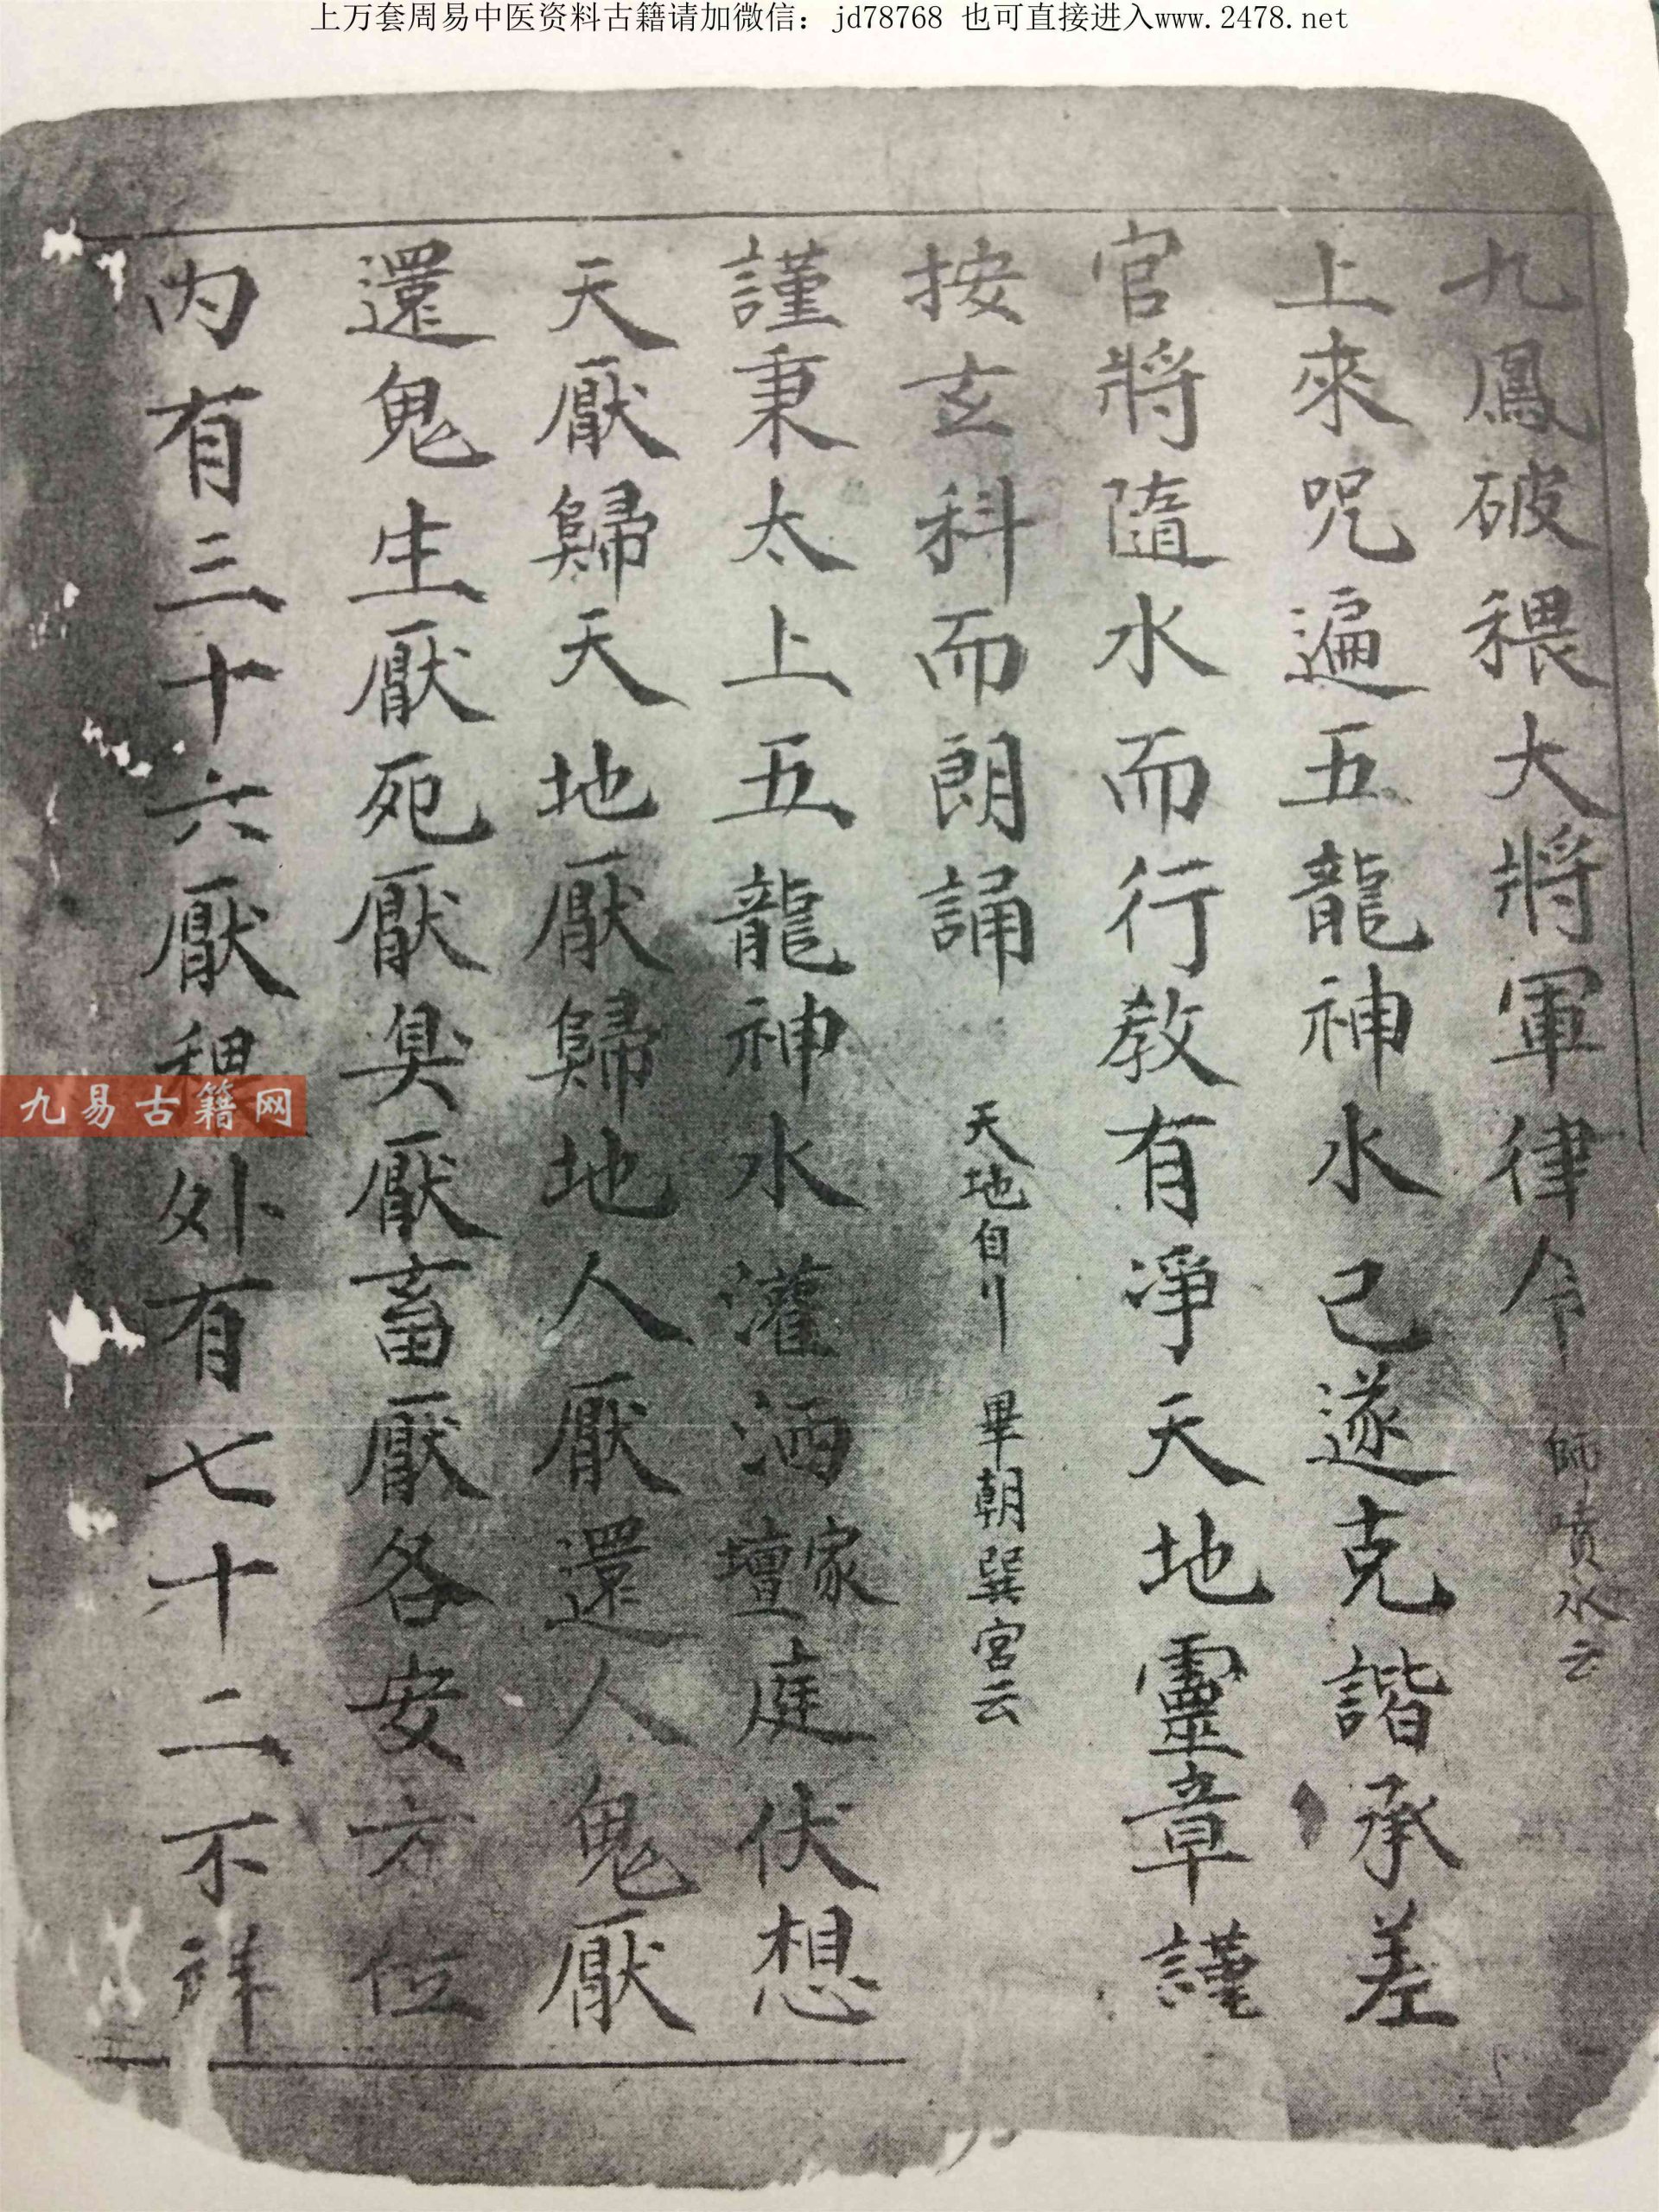 上万套周易中医资料古籍请加微信：jd78768 也可直接进入www.2478.net
九鳳破穢大將軍律令 師噴水云
上來咒遍五龍神水已遂克諧承差
官將隨水而行教有淨天地靈章謹
按玄科而朗誦 天地自 畢朝巽宮云
謹秉太上五龍神水灌洒家壇庭伏想
天厭歸天地厭歸地人厭還人鬼厭
還鬼生厭死厭臭厭畜厭各安方位
内有三十六厭穢外有七十二不祥
九易古籍网